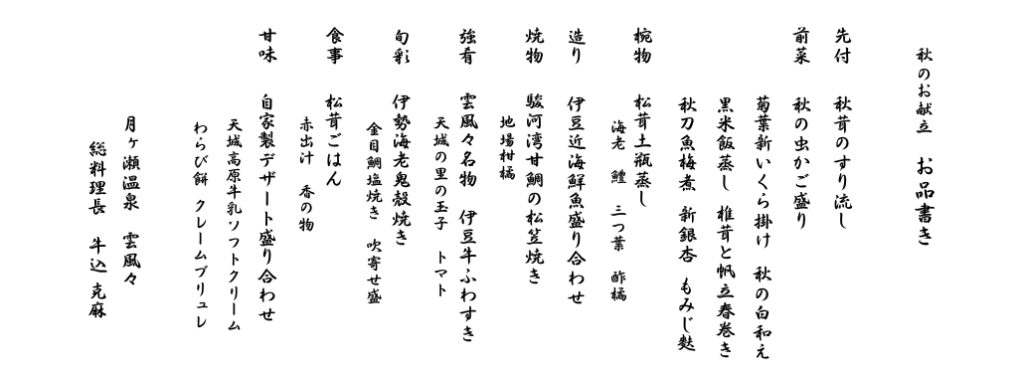 秋のお献立　お品書き
先付　秋茸のすり流し
前菜　秋の虫かご盛り
菊葉新いくら掛け　秋の白和え
黒米飯蒸し　椎茸と帆立春巻き
秋刀魚梅煮　新銀杏　もみじ麩
椀物　松茸土瓶蒸し
海老　鱧　三つ葉　酢橘
造り　伊豆近海鮮魚盛り合わせ
焼物　駿河湾甘鯛の松笠焼き
地場柑橘
強肴　雲風々名物　伊豆牛ふわすき
天城の里の玉子　トマト
旬彩　伊勢海老鬼殻焼き
金目鯛塩焼き　吹寄せ盛
食事　松茸ごはん
赤出汁　香の物
甘味　自家製デザート盛り合わせ
天城高原牛乳ソフトクリーム
わらび餅　クレームブリュレ
月ヶ瀬温泉　雲風々
総料理長　牛込 克麻